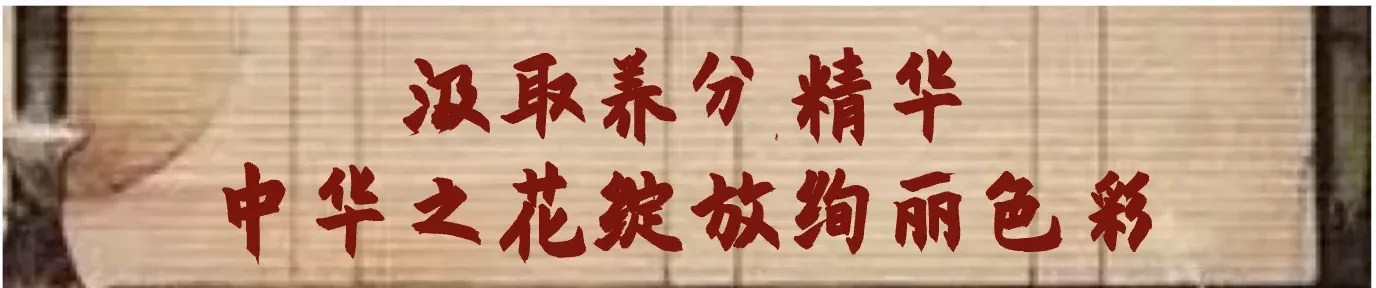 汲取养分 精华
中华之花绽放绚丽色彩